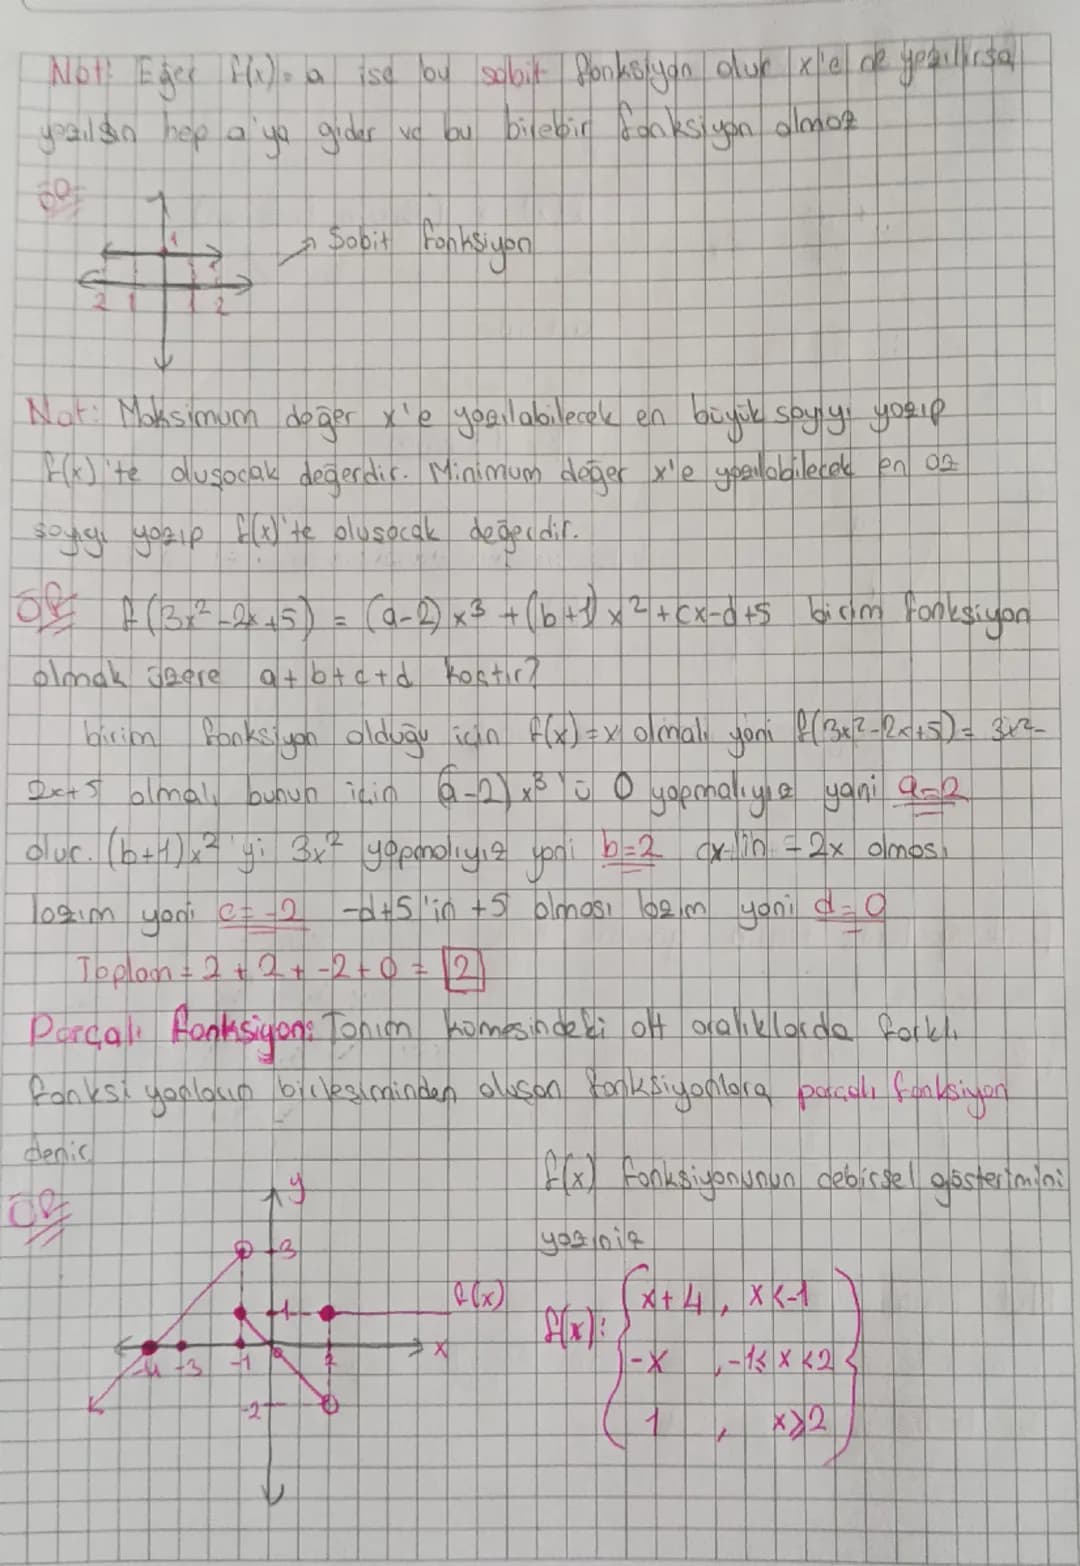 Not: Eğer f(x)=a ise bu sabit fonksiyon olur x'e ne yazılırsa
yazılsın hep a'ya gider ve bu birebir fonksiyon olmaz
ÖR
1
→ Sabit Fonksiyon
2 1 1 2
Not: Maksimum değer x'e yazılabilecek en büyük sayıyı yazıp
f(x)'te oluşacak değerdir. Minimum değer x'e yazılabilecek en az
sayıyı yazıp f(x)'te oluşacak değerdir.
ÖR f(3x²-2x+5) = (a-2)x³+(b+1)x²+cx-d+5 birim fonksiyon
olmak üzere a+b+c+d kaçtır?
birim fonksiyon olduğu için f(x)=x olmalı yani f(3x²-2x+5)=3x²-
2x+5 olmalı bunun için (a-2)x³'ü 0 yapmalıyız yani a=2
olur. (b+1)x²'yi 3x² yapmalıyız yani b=2 cx'in -2x olması
lazım yani c=-2 -d+5'in +5 olması lazım yani d=0
Toplam=2+2+-2+0=2
Parçalı Fonksiyon: Tanım kümesindeki alt aralıklarda farklı
fonksiyonların birleşiminden oluşan fonksiyonlara parçalı fonksiyon
denir
ÖR
f(x) fonksiyonunun cebirsel gösterimini
yazınız
y
3
1
f(x)
x
-4 -3 -1 2
-2
f(x): x+4, x<-1
-x, -1≤x<2
1, x≥2